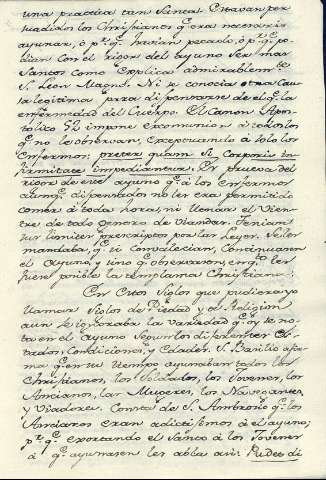 una practica tan Santa. Estavan per
suadidos los Christianos q.e era necesario
ayunar, ò p.r q.e havian pecado, ò p.r q.e po
dian con el rigor del ayuno ser mas
Santos como explica admirablem.te
S. Leon Magno. Ni se conocia otra cau
sa legitima para dispensarse de el q.e la
enfermedad del Cuerpo. El Canon Apos
tolico 52 impone excomunion à todos los
q.e no le observan, exceptuando à solo los
Enfermos; preter quam si corporis in
firmitate impediantur. En prueva del
rigor de este ayuno q.e à los enfermos
aunq.e dispensados no les era permitido
comer à toda hora, ni llenar el Vien
tre de todo genero de Viandas. Tenian
sus limites prescriptos por las Leyes. Se les
mandaba, q.e si convalecian, continuasen
el Ayuno, y sino q.e observasen, en q.to les
fuese posible la templanza Christiana.
En estos Siglos que pudiera yo
llamar Siglos de Piedad y de Religion
aun se ignoraba la variedad q.e oy se no
ta en el Ayuno segun los diferentes Es
tados, Condiciones, y Edades. S. Basilio afir
ma q.e en su tiempo ayunaban todos los
Christianos, los Soldados, los Jovenes, los
Ancianos, las Mugeres, los Navegantes,
y Viadores. Consta de S. Ambrosio q.e los
Ancianos eran adictisimos à el ayuno;
p.r q.e exortando el Santo à los Jovenes
à q.e ayunasen les abla asi: Pudeo di